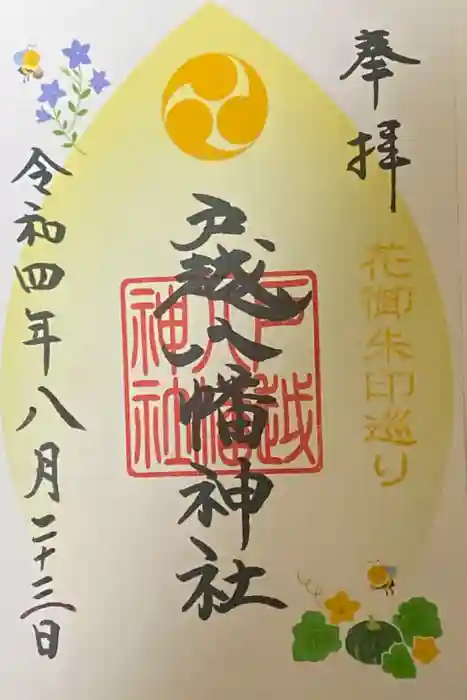 奉拝
花御朱印巡り
戸越八幡神社
戸越八幡神社
令和四年八月二十三日